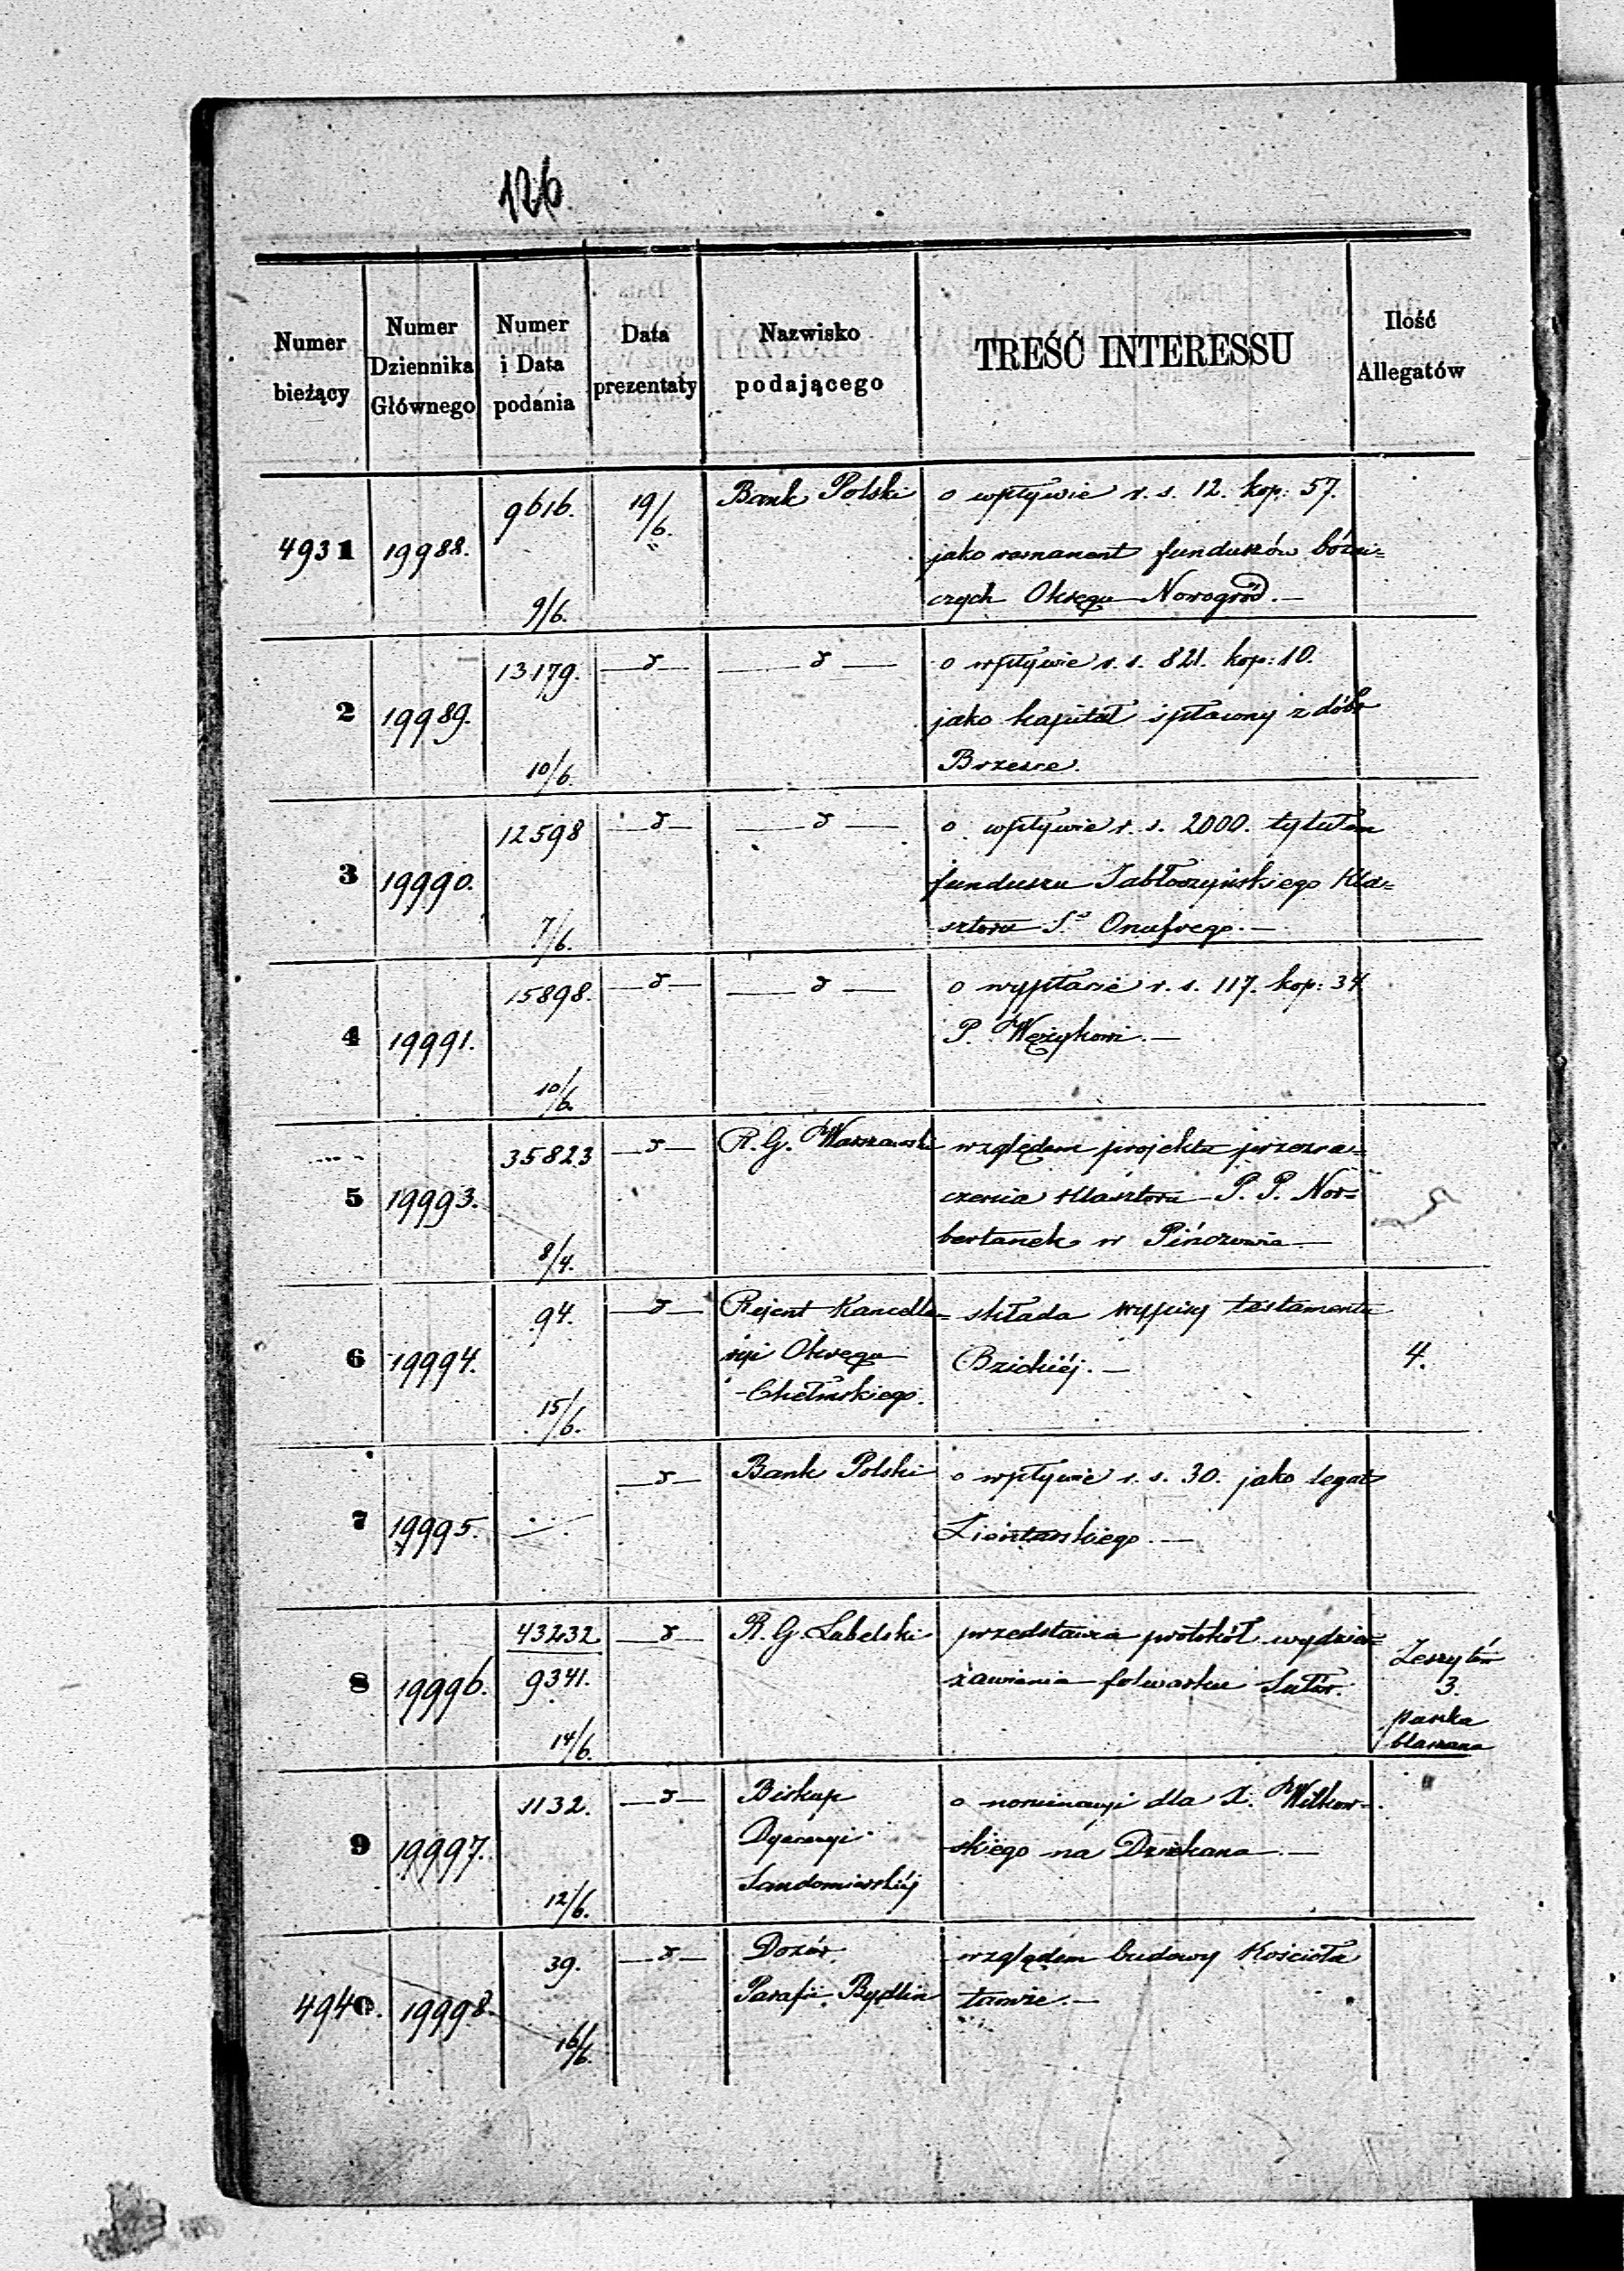 126.
Numer bieżący | Numer Dziennika Głównego | Numer i Data podania | Data prezentaty | Nazwisko podającego | TREŚĆ INTERESSU | Ilość Allegatów
4931 | 19988. | 9616. 9/6. | 19/6. | Bank Polski | o wpływie r. s. 12. kop: 57.
jako remanent funduszów bóźni=
czych Okręgu Nowogród. —
2 | 19989. | 13179. 10/6. | —d— | —d— | o wpływie r. s. 821. kop: 10.
jako kapitał spłacony z dóbr
Brzesce.
3 | 19990. | 12598 7/6. | —d— | —d— | o wpływie r. s. 2000. tytułem
funduszu Jabłoczyńskiego Kla=
sztoru Sº Onufrego. —
4 | 19991. | 15898. 10/6. | —d— | —d— | o wypłacie r. s. 117. kop: 34
P. Wężykowi. —
5 | 19993. | 35823 8/4. | —d— | R. G. Warszawski | względem projektu przezna=
czenia Klasztoru P. P. Nor=
bertanek w Pińczowie —
6 | 19994. | 94. 15/6. | —d— | Rejent Kancella= | składa wypisy testamentu | 4.
ryi Okręgu | Bzickiéj. —
Chełmskiego.
7 | 19995. | —d— | Bank Polski | o wpływie r. s. 30. jako legat
Zientarskiego. —
8 | 19996. | 43232 9341. 14/6. | —d— | R. G. Lubelski | przedstawia protokół wydzier= | Zeszytów
żawienia folwarku | 3.
paczka
blaszana
9 | 19997. | 1132. 12/6. | —d— | Biskup | o nominacyi dla X. Witkow=
Dyecezyi | skiego na Dziekana. —
Sandomirskiéj
4940. | 19998. | 39. 16/6. | —d— | Dozór | względem budowy Kościoła
Parafii Bydlin | tamże. —